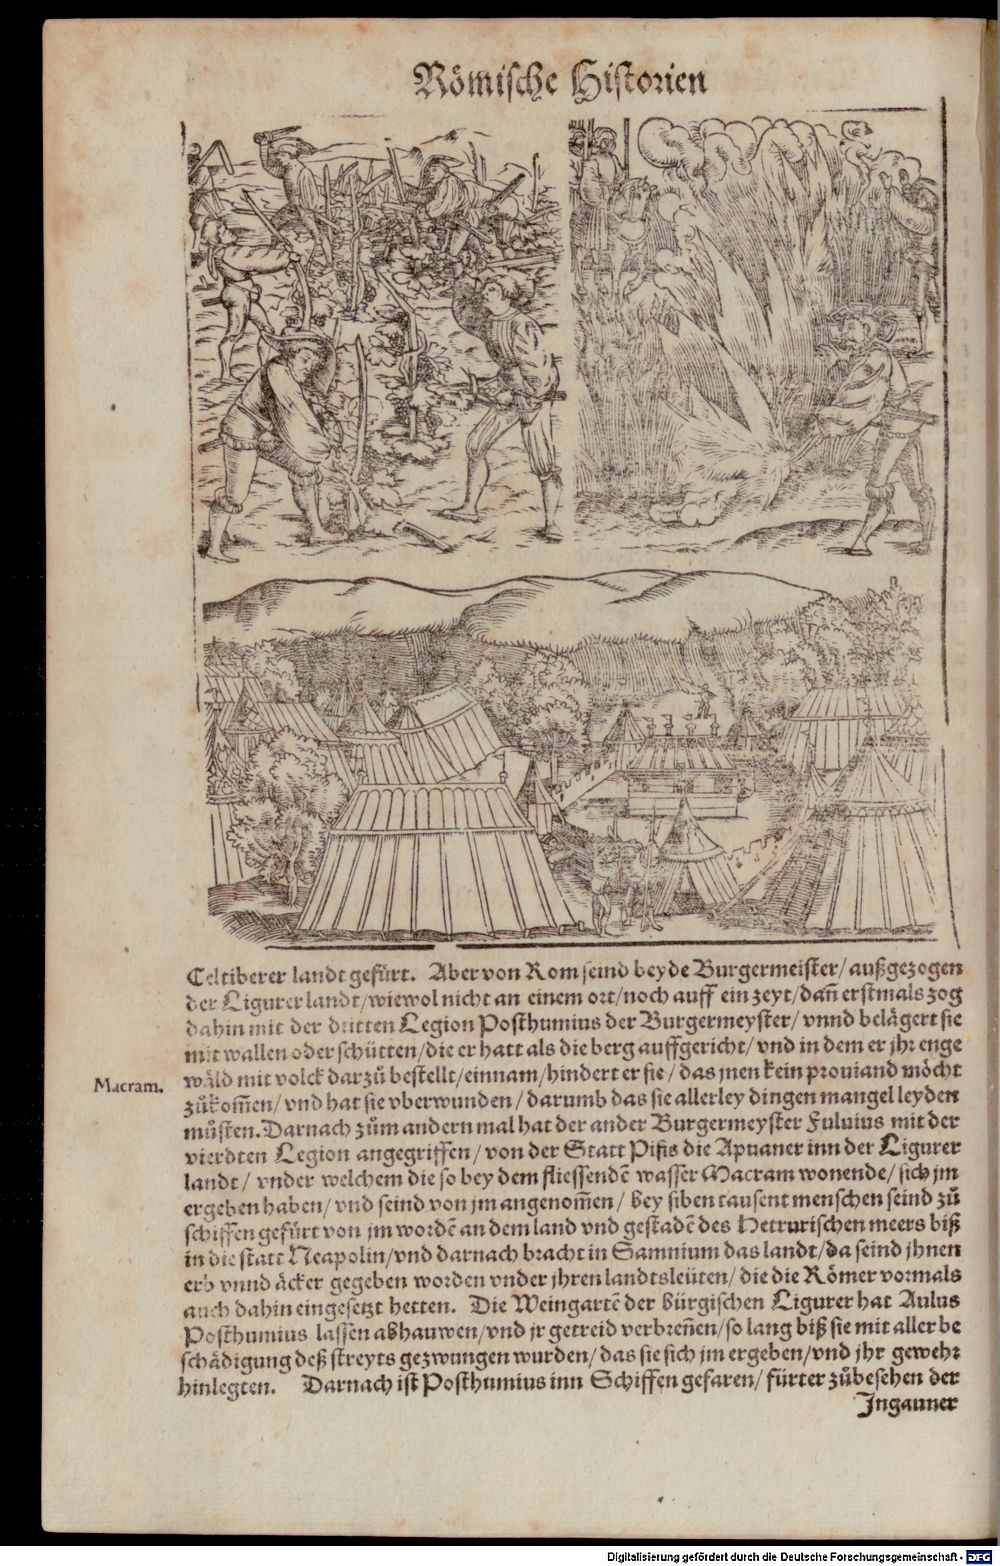 Römische Historien
Celtiberer landt gefürt. Aber von Rom seind beyde Burgermeister/außgezogen
der Ligurer landt/wiewol nicht an einem ort/noch auff ein zeyt/dañ erstmals zog
dahin mit der dritten Legion Posthumius der Burgermeyster/vnnd belägert sie
mit wallen oder schütten/die er hatt als die berg auffgericht/vnd in dem er jhr enge
Macram.
wäld mit volck darzů bestellt/einnam/hindert er sie/das jnen kein prouiand möcht
zůkom̃en/vnd hat sie vberwunden/darumb das sie allerley dingen mangel leyden
můsten. Darnach zům andern mal hat der ander Burgermeyster Fuluius mit der
vierdten Legion angegriffen/von der Statt Pisis die Apuaner inn der Ligurer
landt/vnder welchem die so bey dem fliessendẽ wasser Macram wonende/sich jm
ergeben haben/vnd seind von jm angenom̃en/bey siben tausent menschen seind zů
schiffen gefürt von jm wordẽ an dem land vnd gestadẽ des Hetrurischen meers biß
in die statt Neapolin/vnd darnach bracht in Samnium das landt/da seind jhnen
erb vnnd äcker gegeben worden vnder jhren landtsleüten/die die Römer vormals
auch dahin eingesetzt hetten. Die Weingartẽ der bürgischen Ligurer hat Aulus
Posthumius lassen abhauwen/vnd jr getreid verbreñen/so lang biß sie mit aller be
schädigung deß streyts gezwungen wurden/das sie sich jm ergeben/vnd jhr gewehr
hinlegten. Darnach ist Posthumius inn Schiffen gefaren/fürter zůbesehen der
Ingauner
Digitalisierung gefördert durch die Deutsche Forschungsgemeinschaft - DFG